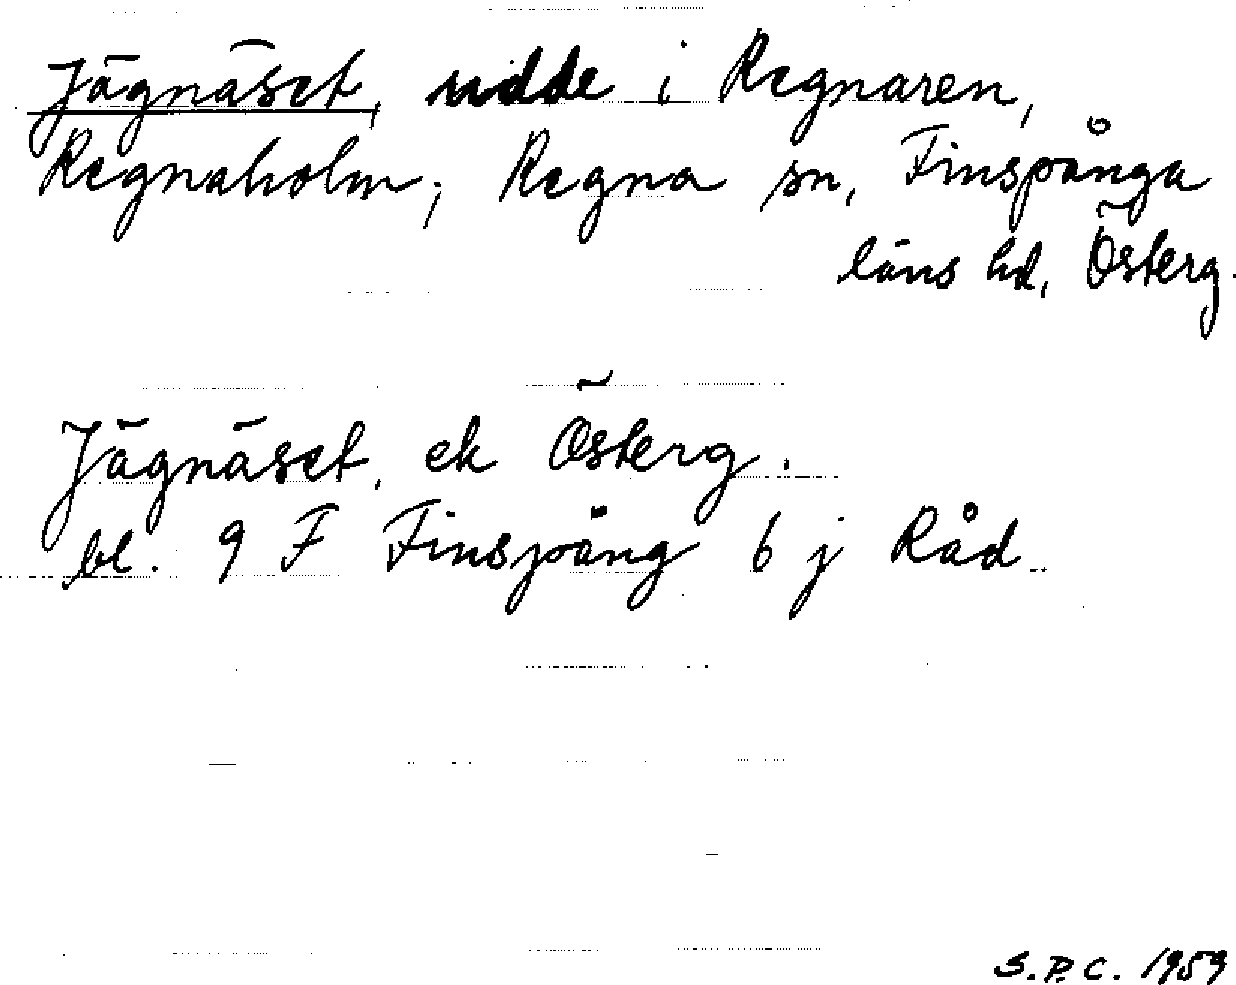 Jägnäset, udde i Regnaren,
Regnaholm, Regna sn, Finspånga
läns hd, Österg.
Jägnäset, ek Österg.
bl. 9 F Finspång 6 j Råd
S.P.C. 1959